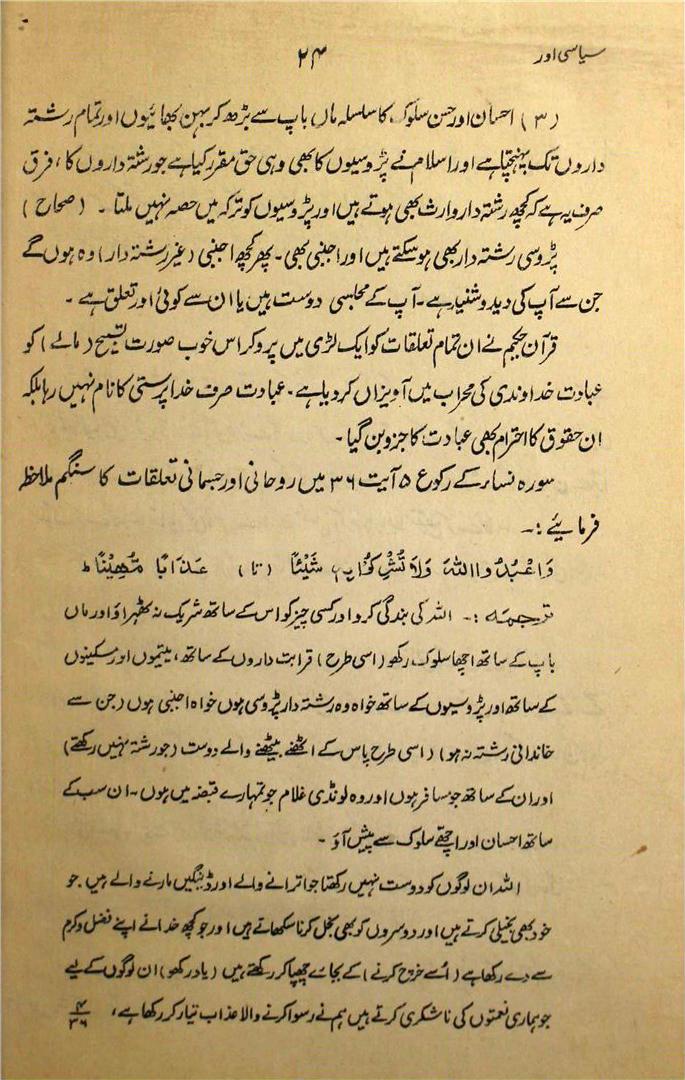 سیاسی اور
۲۴
(۳) احسان اور حسن سلوک کا سلسلہ ماں باپ سے بڑھ کر بہن بھائیوں اور تمام رشتہ
داروں تک پہنچتا ہے اور اسلام نے پڑوسیوں کا بھی وہی حق مقرر کیا ہے جو رشتہ داروں کا، فرق
صرف یہ ہے کہ کچھ رشتہ دار وارث بھی ہوتے ہیں اور پڑوسیوں کو ترکہ میں حصہ نہیں ملتا۔ (صحاح)
پڑوسی رشتہ دار بھی ہو سکتے ہیں اور اجنبی بھی۔ پھر کچھ اجنبی (غیر رشتہ دار) وہ ہوں گے
جن سے آپ کی دید و شنید ہے۔ آپ کے مجلسی دوست ہیں یا ان سے کوئی اور تعلق ہے۔
قرآن حکیم نے ان تمام تعلقات کو ایک لڑی میں پرو کر اس خوب صورت تسبیح (مالے) کو
عبادت خداوندی کی محراب میں آویزاں کر دیا ہے۔ عبادت صرف خدا پرستی کا نام نہیں رہا بلکہ
ان حقوق کا احترام بھی عبادت کا جزو بن گیا۔
سورہ نساء کے رکوع ۵ آیت ۳۶ میں روحانی اور جسمانی تعلقات کا سنگم ملاحظہ
فرمایئے :۔
وَاعْبُدُوا اللّٰہَ وَلَا تُشْرِکُوْا بِہٖ شَیْئًا (تا) عَذَابًا مُّھِیْنًا ط
ترجمہ :۔ اللہ کی بندگی کرو اور کسی چیز کو اس کے ساتھ شریک نہ ٹھہراؤ اور ماں
باپ کے ساتھ اچھا سلوک رکھو (اسی طرح) قرابت داروں کے ساتھ، یتیموں اور مسکینوں
کے ساتھ اور پڑوسیوں کے ساتھ خواہ وہ رشتہ دار پڑوسی ہوں خواہ اجنبی ہوں (جن سے
خاندانی رشتہ نہ ہو) (اسی طرح پاس کے اٹھنے بیٹھنے والے دوست (جو رشتہ نہیں رکھتے)
اور ان کے ساتھ جو مسافر ہوں اور وہ لونڈی غلام جو تمہارے قبضہ میں ہوں۔ ان سب کے
ساتھ احسان اور اچھے سلوک سے پیش آؤ۔
اللہ ان لوگوں کو دوست نہیں رکھتا جو اترانے والے اور ڈینگیں مارنے والے ہیں۔ جو
خود بھی بخیلی کرتے ہیں اور دوسروں کو بھی بخل کرنا سکھاتے ہیں اور جو کچھ خدا نے اپنے فضل و کرم
سے دے رکھا ہے (اُسے خرچ کرنے) کے بجائے چھپا کر رکھتے ہیں (یاد رکھو) ان لوگوں کے لیے
جو ہماری نعمتوں کی ناشکری کرتے ہیں ہم نے رسوا کرنے والا عذاب تیار کر رکھا ہے، ۴/۳۶